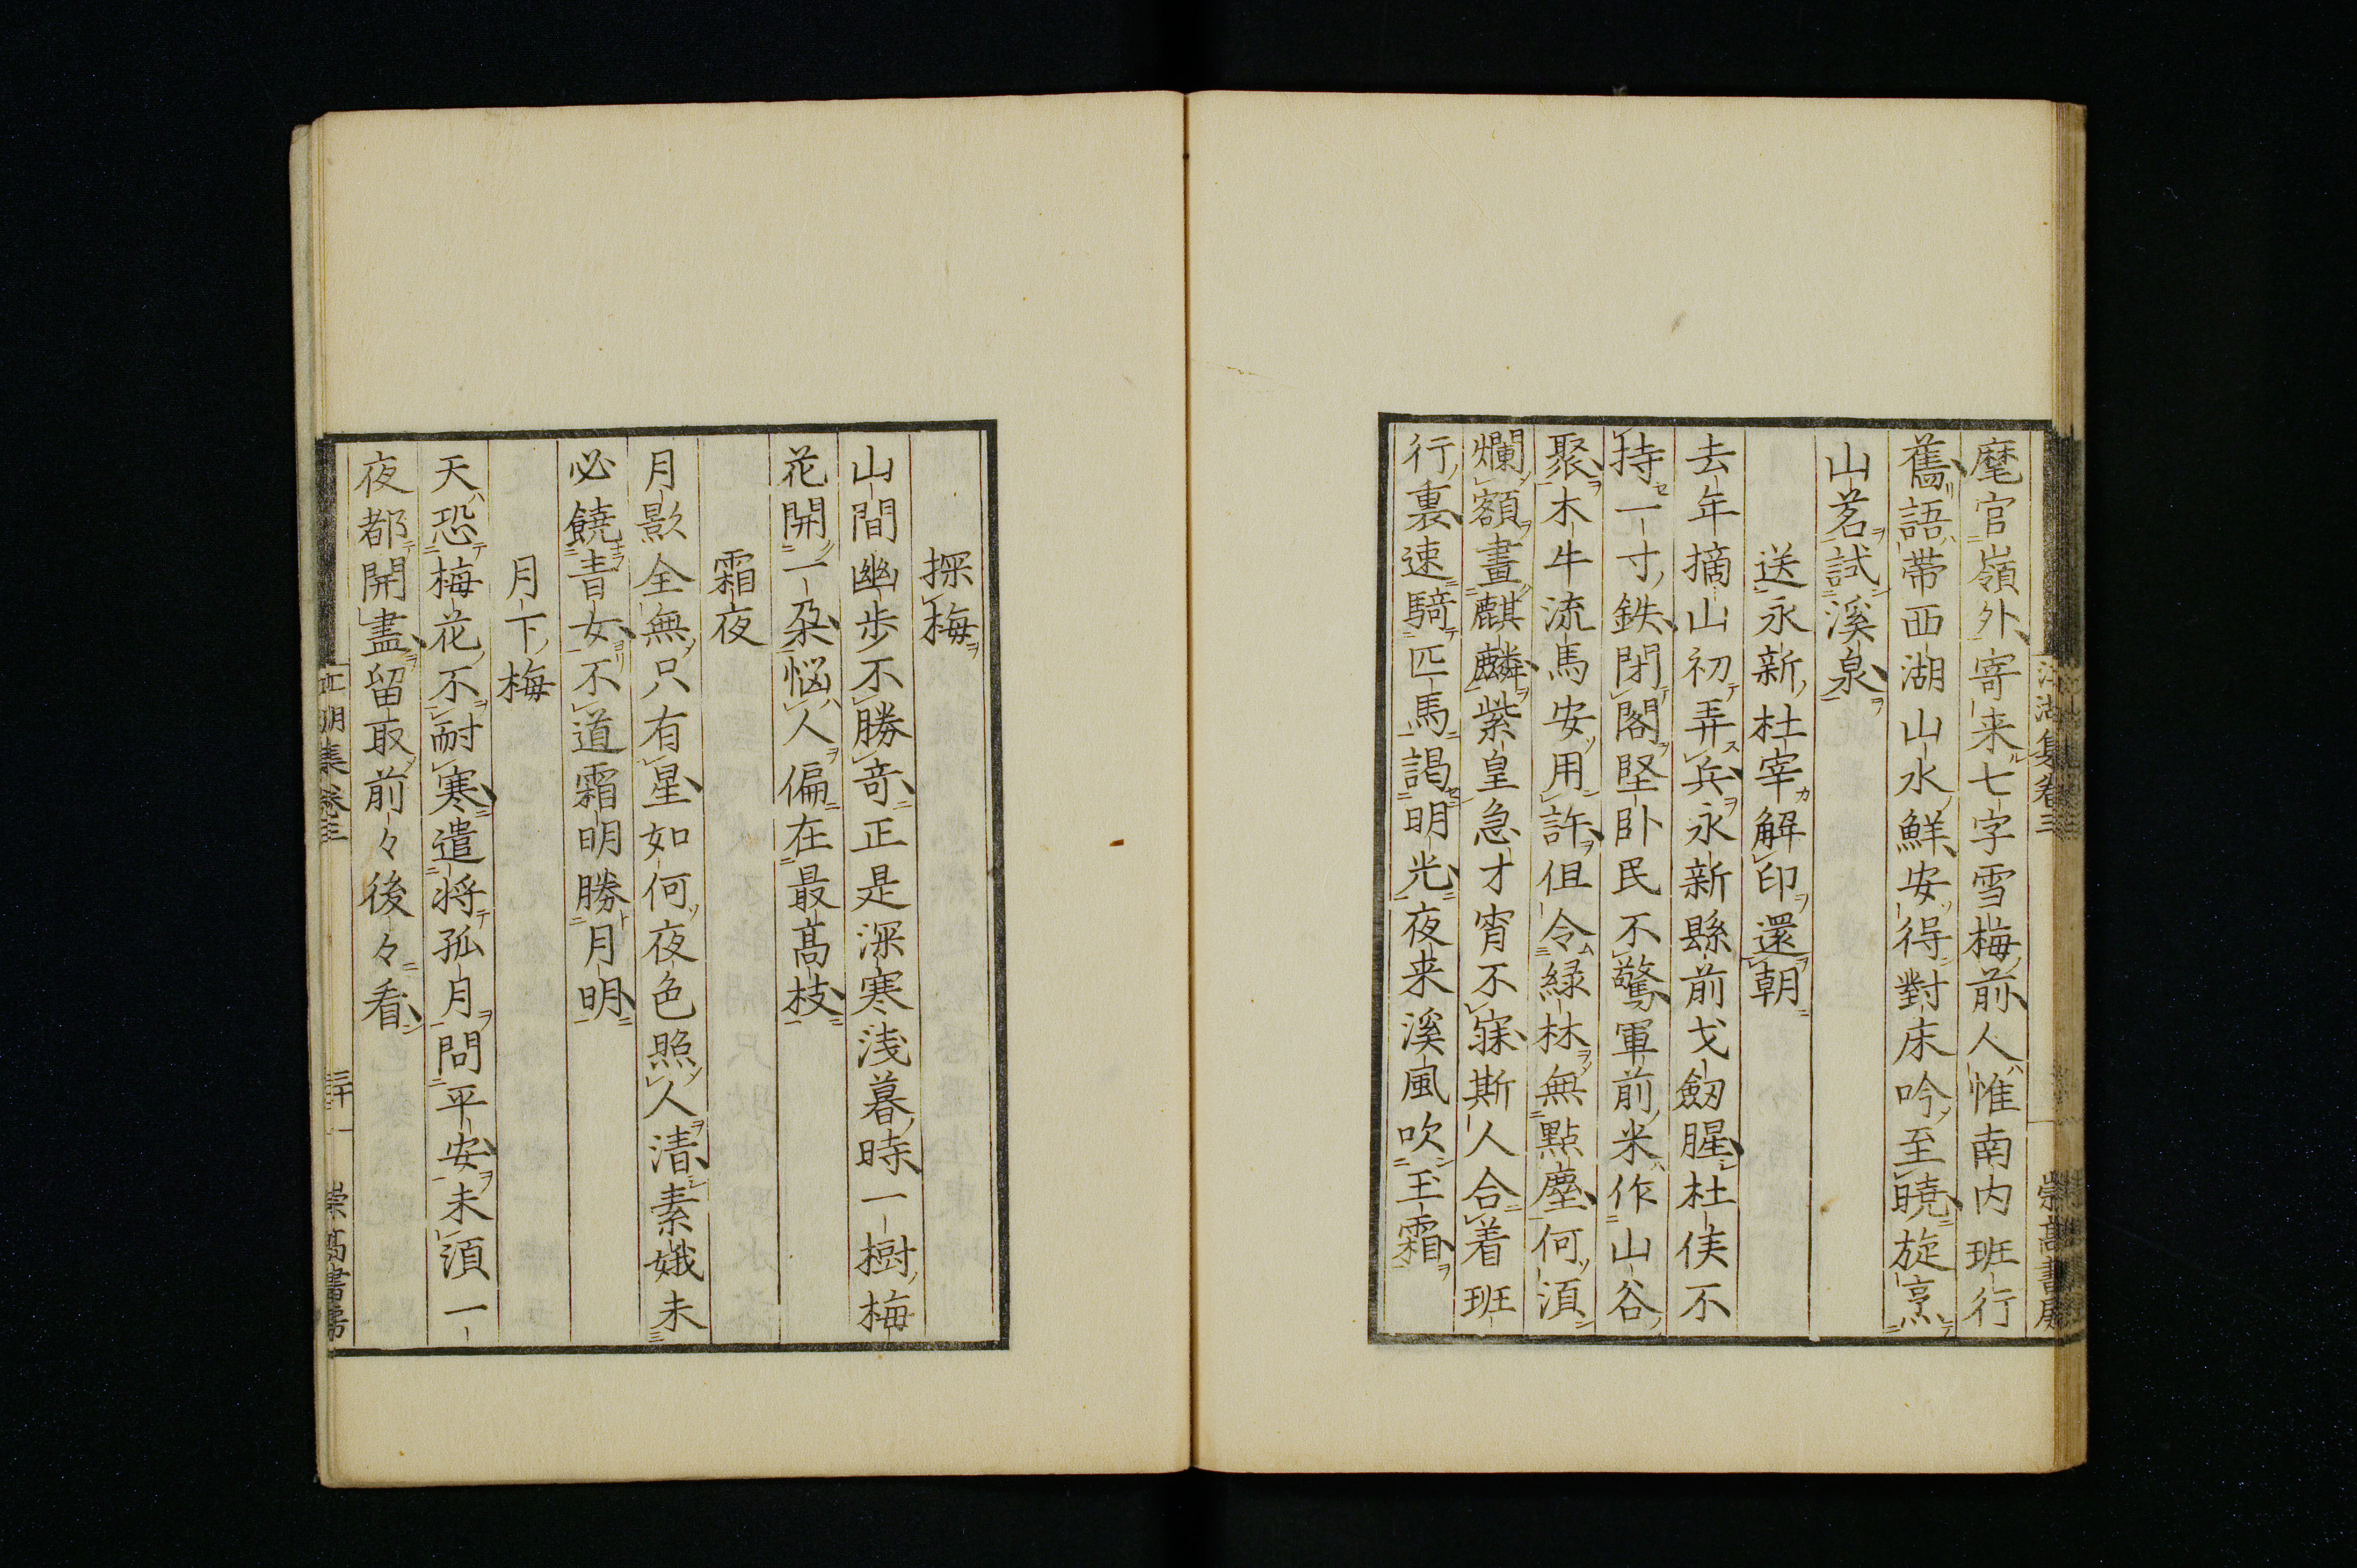 江湖集卷三 崇高書房
麾官嶺外寄来七字雪梅前人惟南内班行
舊語帯西湖山水鮮安得對床吟至曉旋烹
山茗試溪泉
送永新杜宰解印還朝
去年摘山初弄兵永新縣前戈劔腥杜侯不
持一寸鉄閉閣堅卧民不驚軍前米作山谷
聚木牛流馬安用許但令緑林無點塵何湏
爛額畫麒麟紫皇急才宵不寐斯人合着班
行裏速騎匹馬謁明光夜来溪風吹玉霜
探梅
山間幽歩不勝竒正是深寒浅暮時一樹梅
花開一朶悩人偏在最髙枝
霜夜
月影全無只有星如何夜色照人清素娥未
必饒青女不道霜明勝月明
月下梅
天恐梅花不耐寒遣将孤月問平安未湏一
夜都開盡留取前々後々看
江湖集 卷三 三十一 崇髙書房